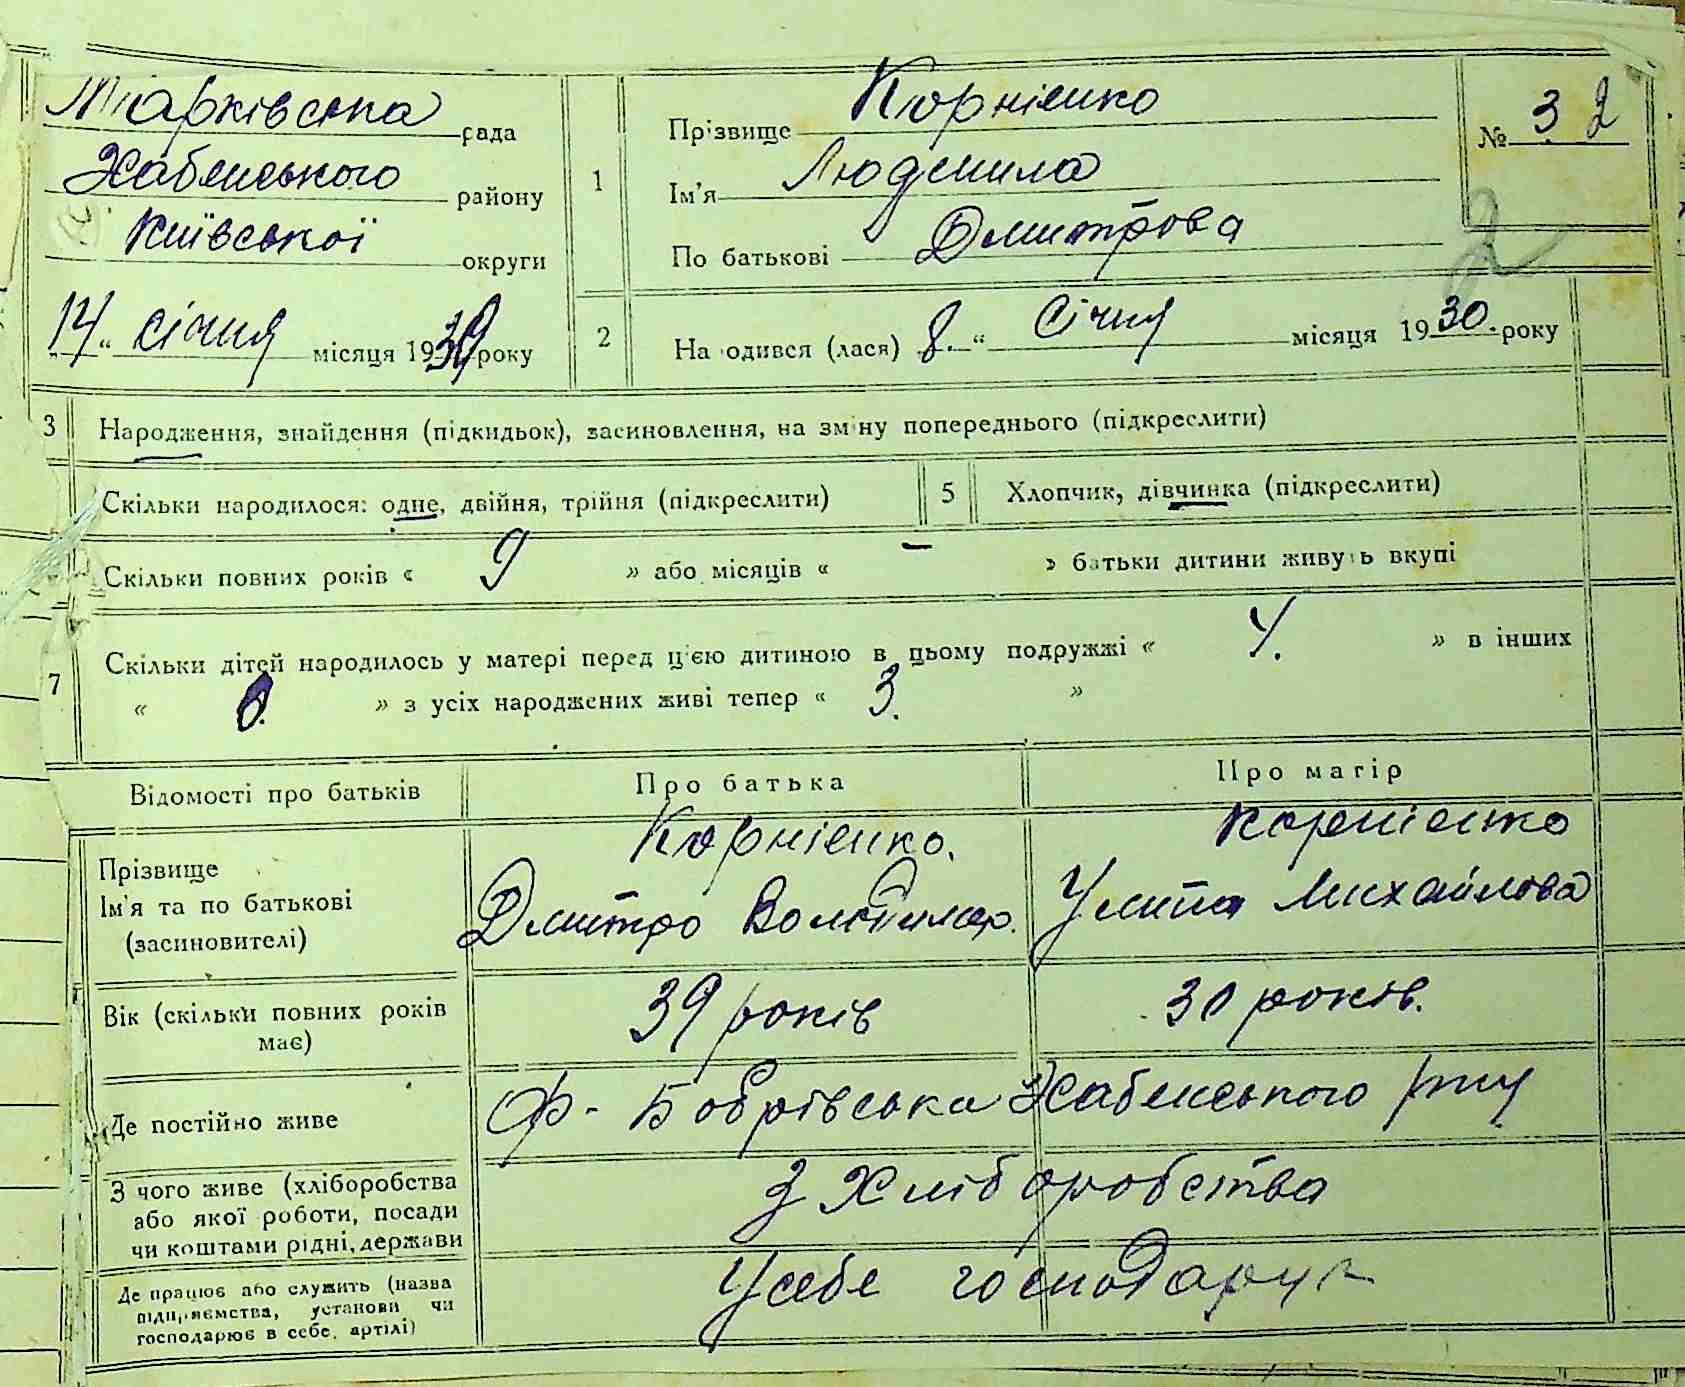 Марківська рада
Хабенського району
Київської округи
14 " січня місяця 1930 року
1
Прізвище Корнієнко
Ім'я Людмила
По батькові Дмитрова
№ 32
2
2
На одився (лася) 8. " Січня місяця 1930. року
3 Народження, знайдення (підкидьок), засиновлення, на зміну попереднього (підкреслити)
Скільки народилося: одне, двійня, трійня (підкреслити)
5 Хлопчик, дівчинка (підкреслити)
Скільки повних років « 9 » або місяців « – » батьки дитини живуть вкупі
7 Скільки дітей народилось у матері перед цією дитиною в цьому подружжі « 4. » в інших
« 0. » з усіх народжених живі тепер « 3. »
Відомості про батьків Про батька Про матір
Прізвище
Ім'я та по батькові
(засиновителі)
Корнієнко.
Дмитро Володимир.
Корнієнко
Улита Михайлова
Вік (скільки повних років
має)
39 років 30 років.
Де постійно живе Ф- Бобрівська Хабенського р-ну
З чого живе (хліборобства
або якої роботи, посади
чи коштами рідні, держави
З Хліборобства
Де працює або служить (назва
підприємства, установи чи
господарює в себе, артілі)
У себе господарує